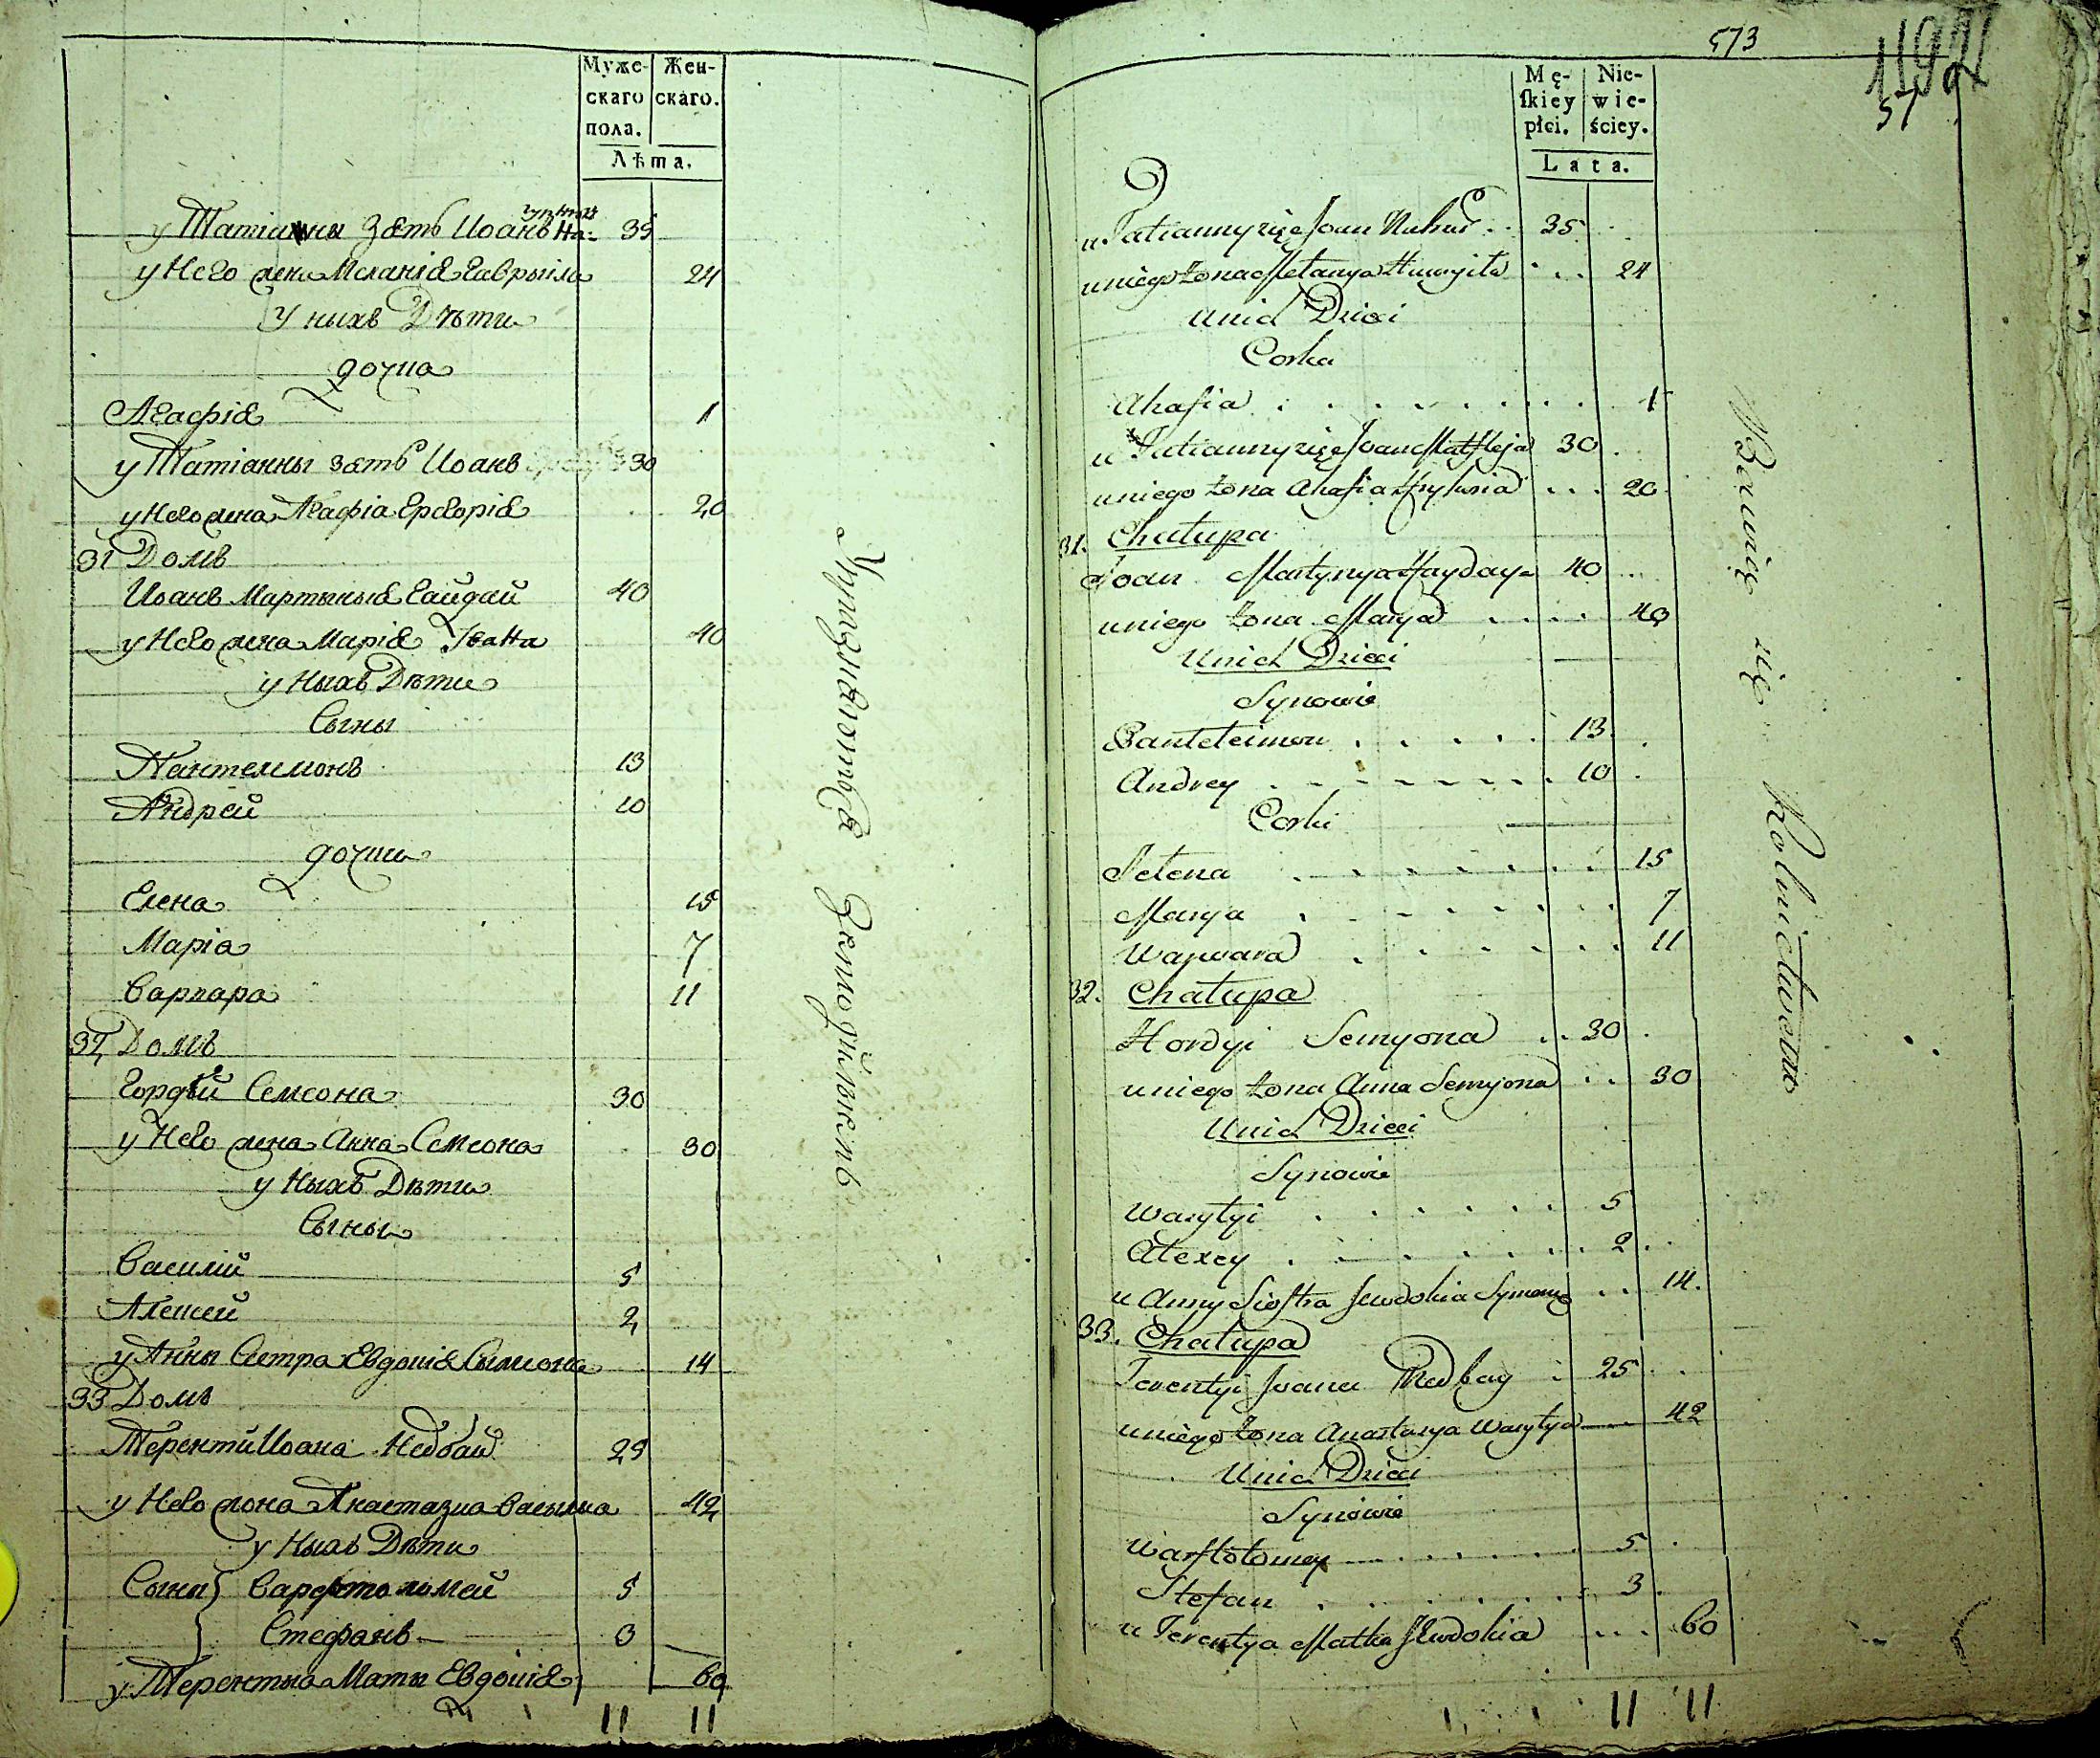 Муже- Жен-
скаго скаго.
пола.
Лѣта.
у Татіанны зять Иоанъ 35
у Него жена Меланія Гаврыила 24
У ныхъ Дѣти
дочка
Агафія 1
у Татіанны зять Иоанъ 30
у Него жена Агафіа 20
31 Домъ
Иоанъ Мартыныя Гайдай 40
у Него жена Марія Іванa 40
у Ныхъ Дѣти
Сыны
Пантелимонъ 13
Андрей 10
дочки
Елена 15
Маріа 7
Варвара 11
32 Домъ
Гордѣй Семеона 30
у Него жена Анна Семеона 30
у Ныхъ Дѣти
Сыны
Василій 5
Алексей 2
у Анны Сестра Евдокія Сымеона 14
33 Домъ
Терентий Иоана Недбай 25
у Него жона Анастазиа Васылиа 42
у Ныхъ Дѣти
Сыны Варфтоломей 5
Стефанъ 3
у Терентыа Маты Евдокія 60
11 11
Упражняются Земледѣлиемъ
573
1192
57
Mę- Nie-
ſkiey wie-
płci. ściey.
Lata.
u Tatianny zięć Joan 35
u niego żona Melanya 24
U nich Dzieci
Corka
Ahafia 1
u Tatianny zięć Joan 30
u niego żona Ahafia 20
31. Chałupa
Joan Martynya Hayday 40
u niego żona Marya 40
U nich Dzieci
Synowie
Panteleimon 13
Andrey 10
Corki
Jelena 15
Marya 7
Warwara 11
32. Chałupa
Hordyi Semyona 30
u niego żona Anna Semyona 30
U nich Dzieci
Synowie
Wasylyi 5
Alexey 2
u Anny Siostra Jewdokia Symona 14.
33. Chałupa
Terentyi Joana Nedbay 25
u niego żona Anastasya Wasylya 42
U nich Dzieci
Synowie
Warftołomey 5
Stefan 3
u Terentya Matka Jewdokia 60
11 11
Bawią się Rolnictwem